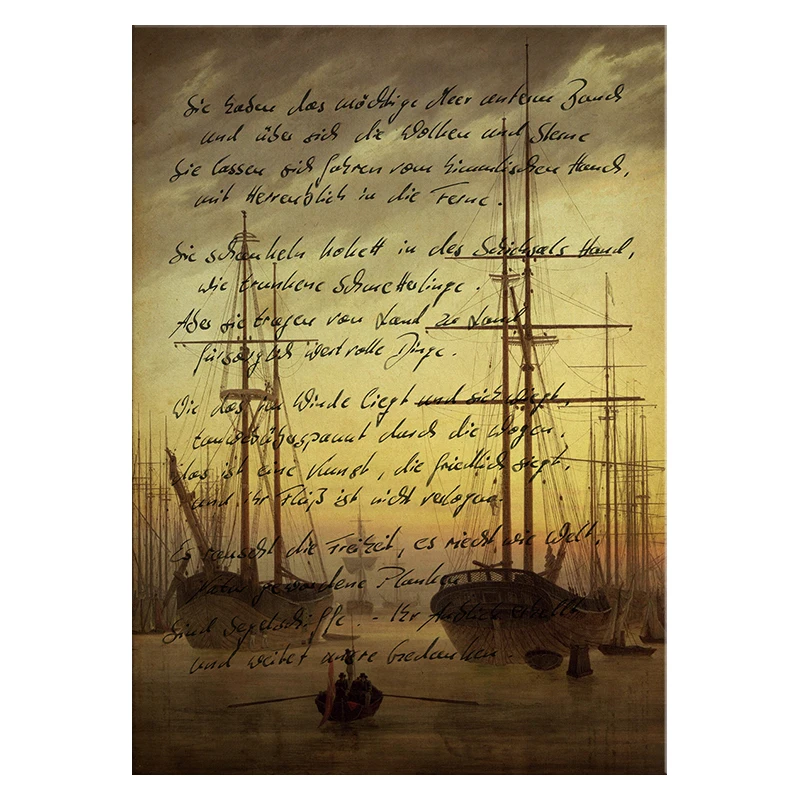 Sie haben das mächtige Meer unterm Bauch
und über sich die Wolken und Sterne
Sie lassen sich fahren vom himmlischen Hauch,
mit Herrenblick in die Ferne.
Sie schaukeln kokett in des Schicksals Hand,
wie trunkene Schmetterlinge.
Aber sie tragen von Land zu Land
fürsorglich wertvolle Dinge.
Wie das im Winde liegt und sich wiegt,
tauwebüberspannt durch die Wogen,
das ist eine Kunst, die friedlich siegt,
und ihr Fleiß ist nicht verlogen.
Es rauscht die Freiheit, es riecht wie Welt,
Natur gewordene Planken
Sind Segelschiffe. - Ihr Anblick erhellt
und weitet unsre Gedanken.